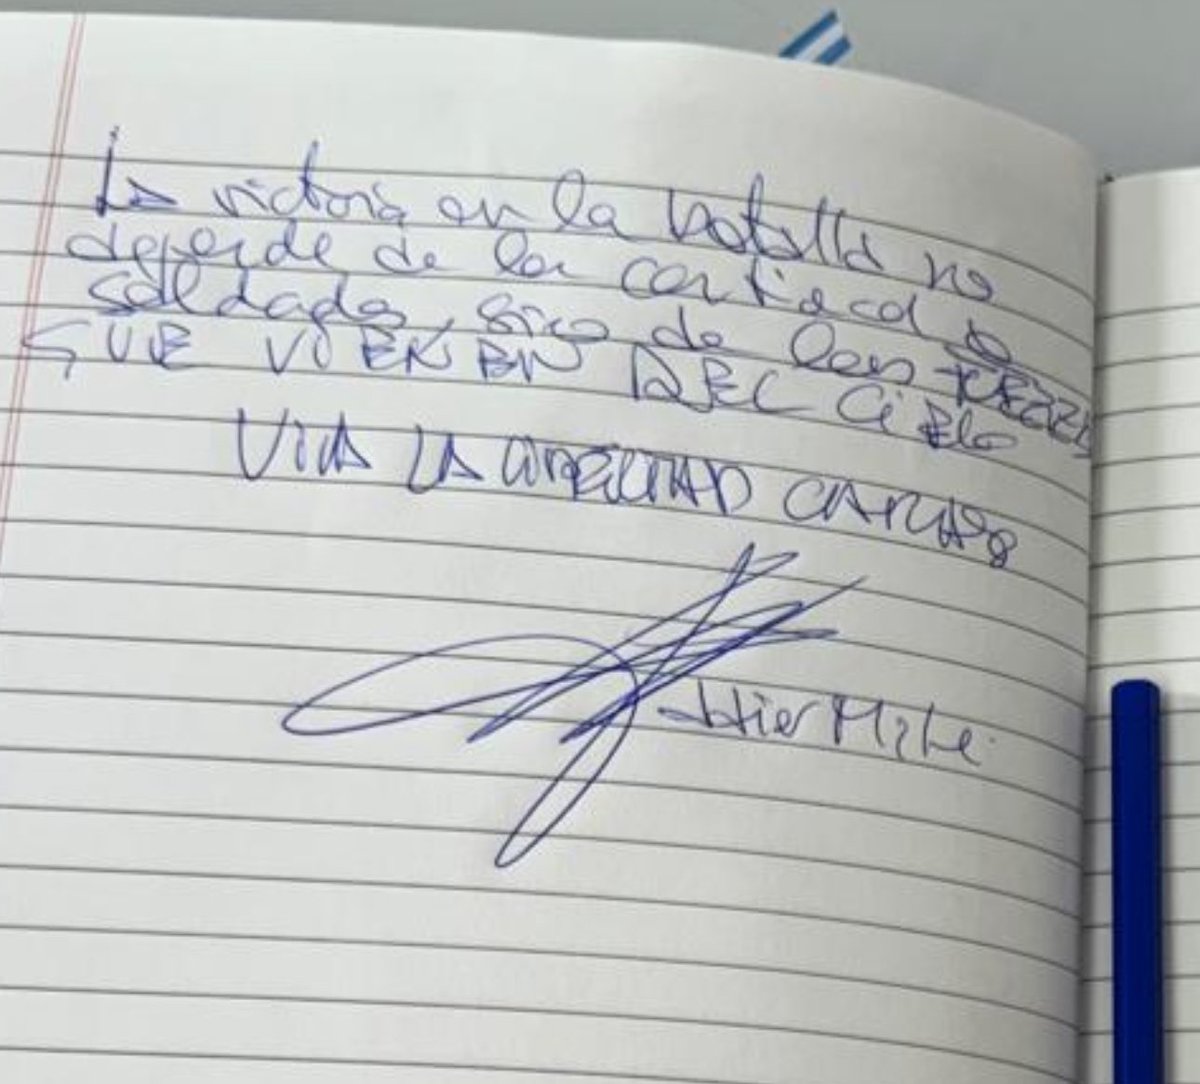 La victoria en la batalla no
depende de la cantidad de
soldados, sino de las FUERZAS
QUE VIENEN DEL CIELO
VIVA LA LIBERTAD CARAJO
Javier Milei